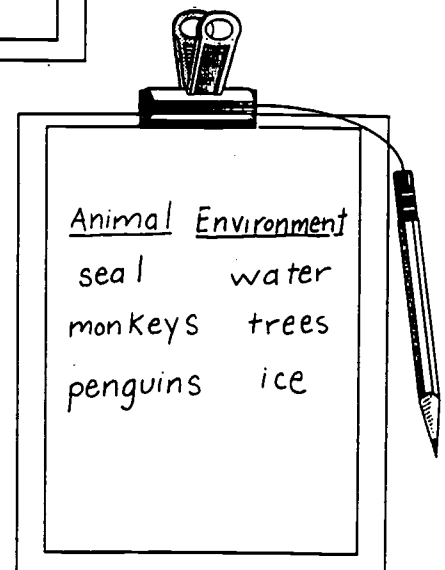 Animal Environment
seal water
monkeys trees
penguins ice